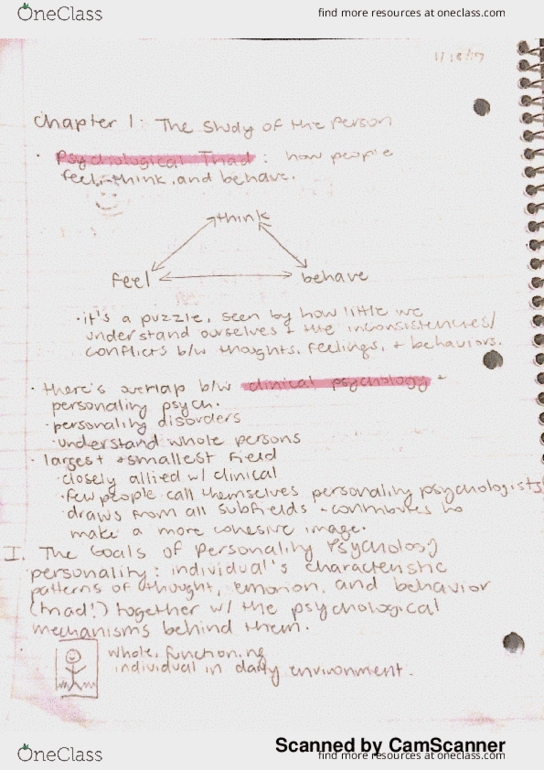 OneClass
find more resources at oneclass.com
Chapter 1: The Study of the Person
· Psychological Triad: how people
feel, think, and behave.
think
feel
behave
· it's a puzzle, seen by how little we
understand ourselves & the inconsistencies/
conflicts b/w thoughts, feelings, + behaviors.
· there's overlap b/w clinical psychology +
personality psych.
· personality disorders
· understand whole persons
· largest + smallest field
· closely allied w/ clinical
· few people call themselves personality psychologists
· draws from all subfields + contributes to
make a more cohesive image.
I. The Goals of Personality Psychology
personality: individual's characteristic
patterns of thought, emotion, and behavior
(triad!) together w/ the psychological
mechanisms behind them.
whole, functioning
individual in daily environment.
Scanned by CamScanner
OneClass
find more resources at oneclass.com